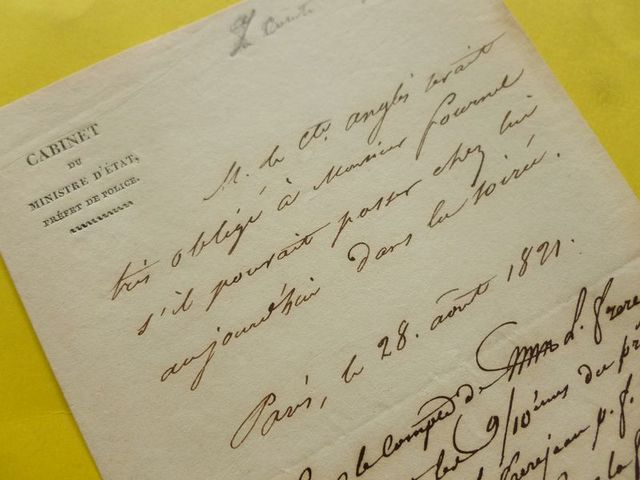 Comte
CABINET
DU
MINISTRE D'ÉTAT,
PRÉFET DE POLICE.
M. le Cte. anglès serait
très obligé à Monsieur Fournel
s'il pourait passer chez lui
aujourd'hui dans la soirée.
Paris, le 28. août 1821.
le compte de L. frere
les 9/10èmes du
frerejean p. f.